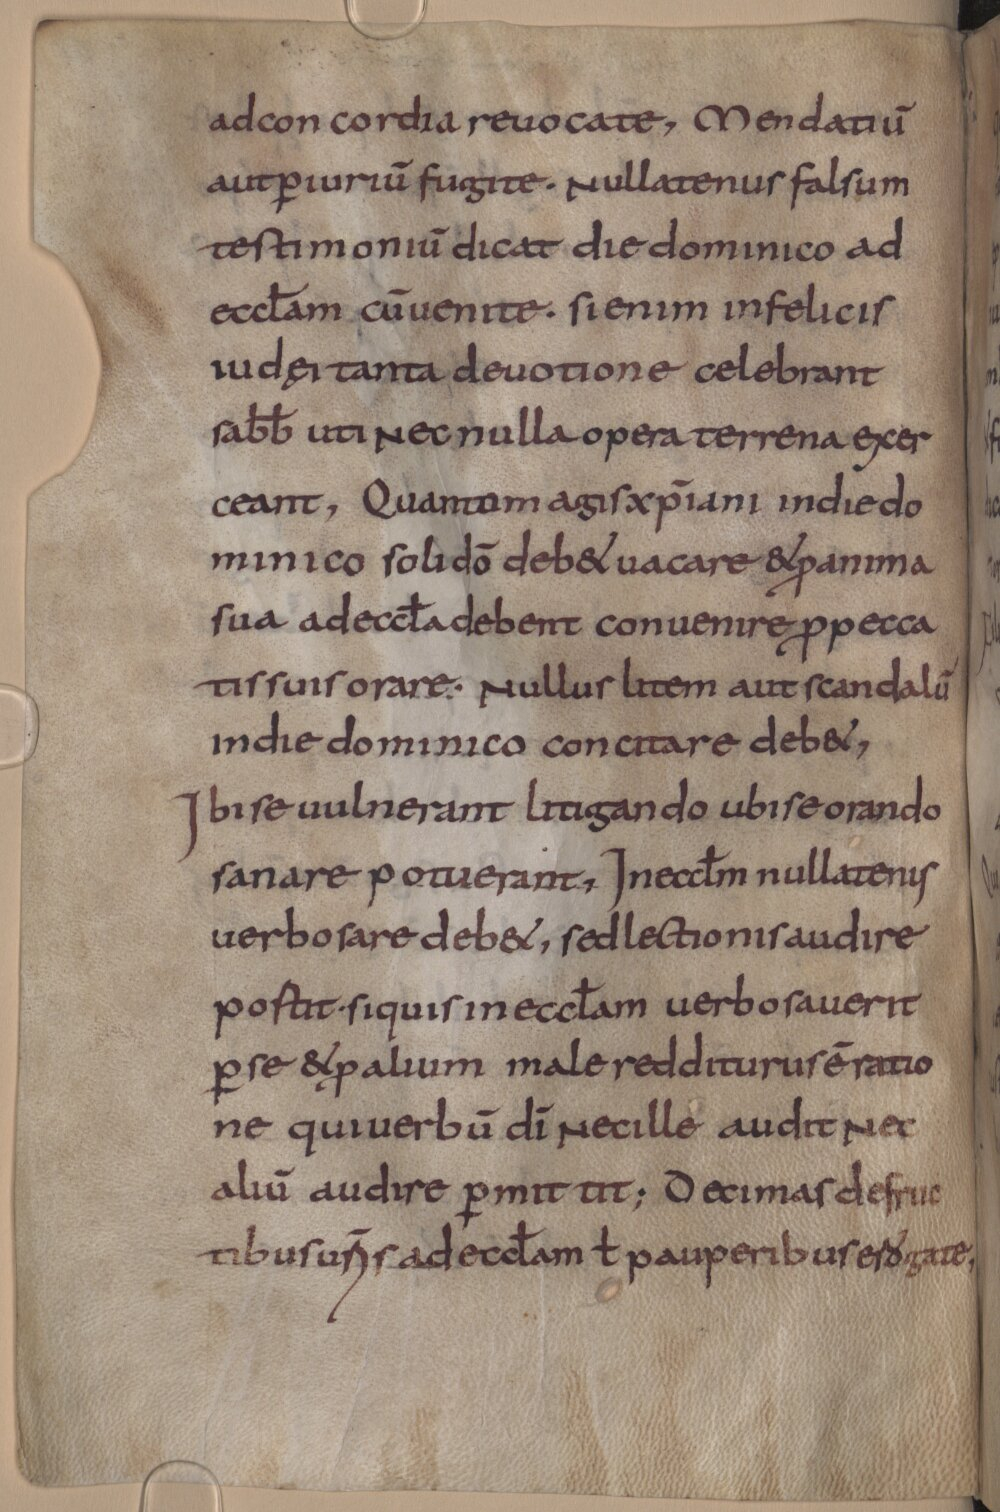 adconcordia reuocate, Mendatiū
aut ꝑiuriū fugite. Nullatenus falsum
testimoniū dicat die dominico ad
eccłam cūuenite. si enim infelicis
iudęi tanta deuotione celebrant
sab̄b̄ uti Nec nulla opera terrena exer
ceant, Quantomagis xp̄iani indie do
minico solidō deb& uacare & ꝓ anima
sua ad eccła debent conuenire ꝓ pecca
tis suis orare. Nullus litem aut scandalū
indie dominico concitare deb&,
Ibi se uulnerant litigando ubi se orando
sanare potuerant, In eccłm nullatenus
uerbosare deb&, sed lectionis audire
postit. siquis in eccłam uerbosauerit
ꝑ se & ꝓ alium male redditurus ē ratio
ne qui uerbū dī Nec ille audit Nec
aliū audire ꝑmittit; Decimas de fruc
tibus ur̄is ad eccłam ł pauperibus